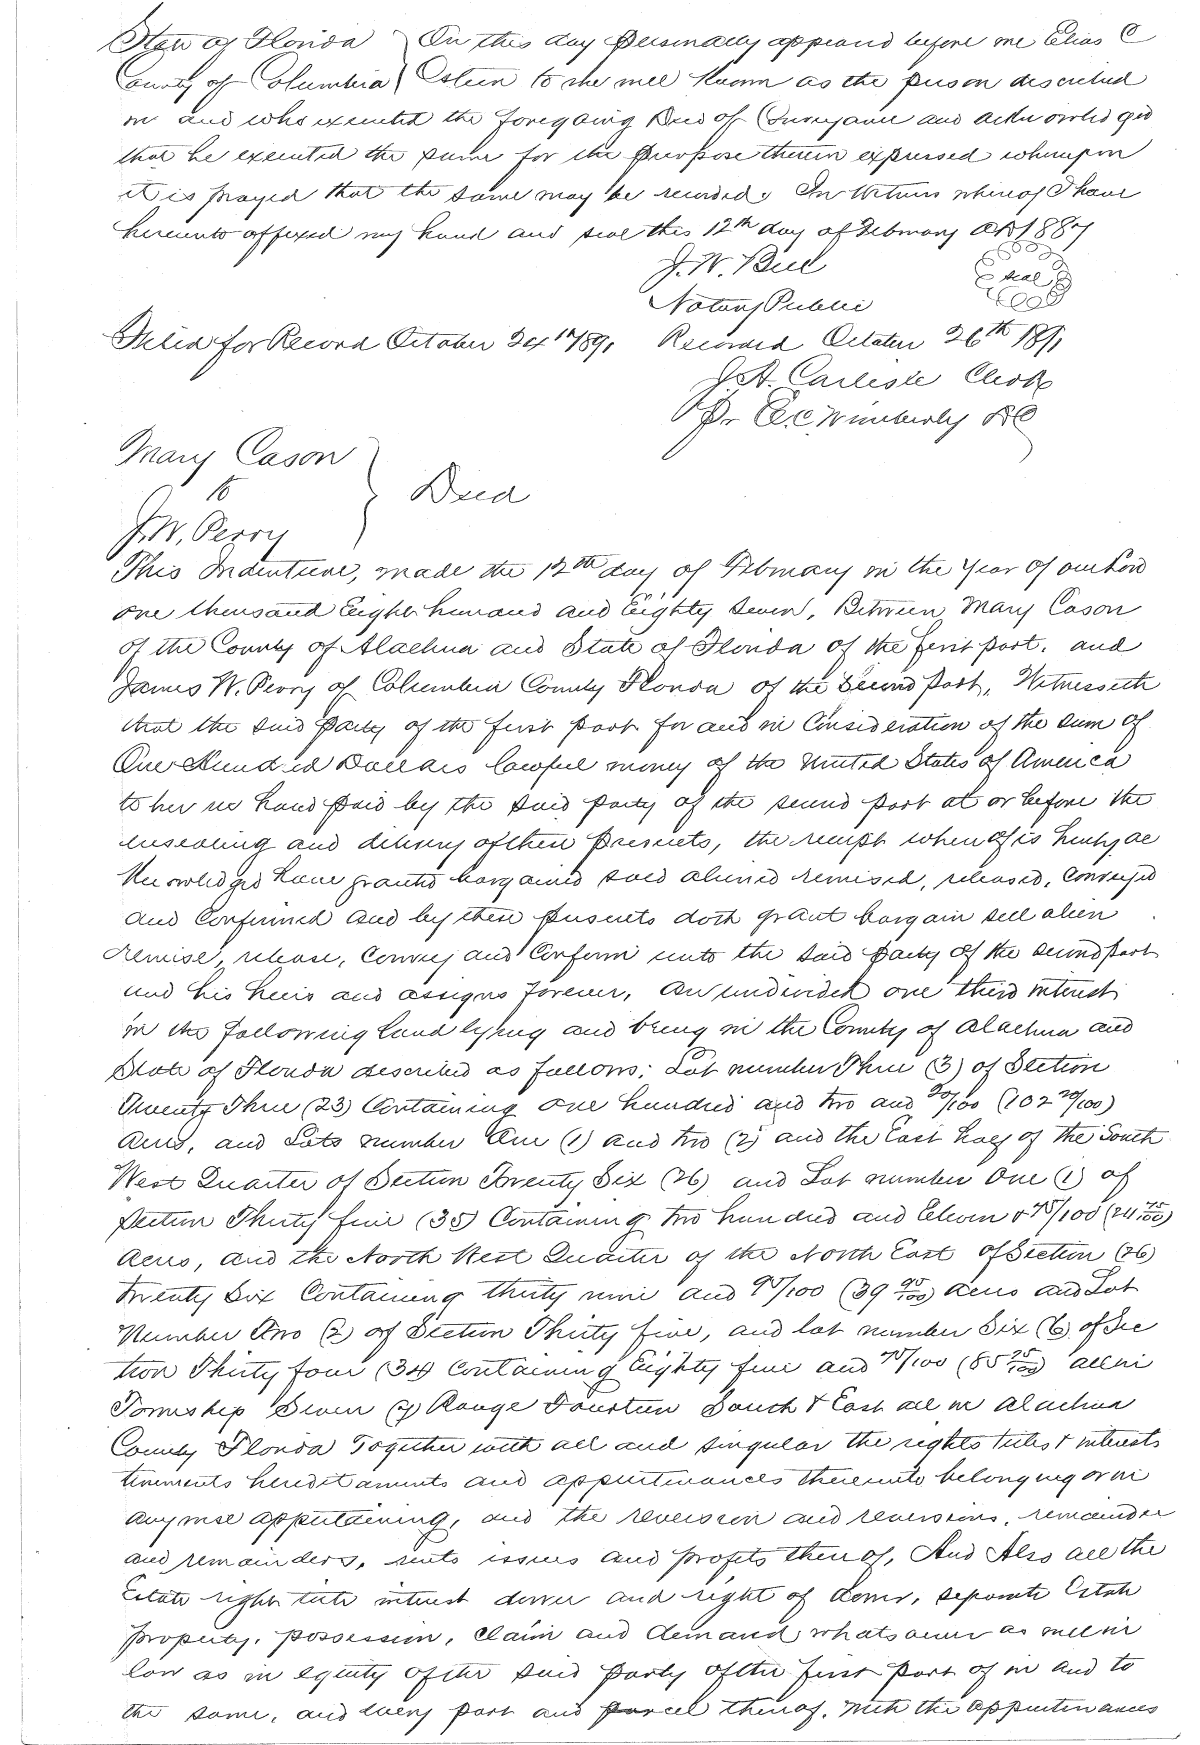 State of Florida } On this day personally appeared before me Elias C
County of Columbia } Osteen to me well known as the person described
in and who executed the foregoing Deed of Conveyance and acknowledged
that he executed the same for the purpose therein expressed whereupon
it is prayed that the same may be recorded. In Witness whereof I have
hereunto affixed my hand and seal this 12th day of February AD 1887
J. W. Bell seal
Notary Public
Filed for Record October 24th 1891 Recorded October 26th 1891
J. A. Carlisle Clerk
Pr E. C. Wimberly DC
Mary Cason
to } Deed
J. W. Perry
This Indenture, made the 12th day of February in the Year of our Lord
one thousand Eight hundred and Eighty Seven, Between Mary Cason
of the County of Alachua and State of Florida of the first part, and
James W. Perry of Columbia County Florida of the Second Part, Witnesseth
that the said Party of the first part for and in Consideration of the sum of
One Hundred Dollars lawful money of the United States of America
to her in hand paid by the said party of the second part at or before the
ensealing and delivery of these presents, the receipt whereof is hereby ac
knowledged have granted bargained sold aliened remised, released, Conveyed
and Confirmed and by these presents doth grant bargain sell alien
remise, release, Convey and Confirm unto the said party of the second part
and his heirs and assigns forever, an undivided one third interest
in the following land lying and being in the County of Alachua and
State of Florida described as follows; Lot number Three (3) of Section
Twenty Three (23) Containing one hundred and two and 20/100 (102 20/100)
acres, and Lots number One (1) and two (2) and the East half of the South
West Quarter of Section Twenty Six (26) and Lot number One (1) of
Section Thirty five (35) Containing two hundred and Eleven & 75/100 (211 75/100)
acres, and the North West Quarter of the North East of Section (26)
twenty Six Containing thirty nine and 95/100 (39 95/100) acres and Lot
Number Two (2) of Section Thirty five, and lot number Six (6) of Sec
tion Thirty four (34) Containing Eighty five and 75/100 (85 75/100) all in
Township Seven (7) Range Fourteen South & East all in Alachua
County Florida Together with all and singular the rights titles & interests
tenements hereditaments and appurtenances thereunto belonging or in
anywise appertaining, and the reversion and reversions, remainder
and remainders, rents issues and profits thereof, And Also all the
Estate right title interest dower and right of dower, separate Estate
property, possession, claim and demand whatsoever as well in
law as in equity of the said party of the first part of in and to
the same, and every part and parcel thereof, with the appurtenances